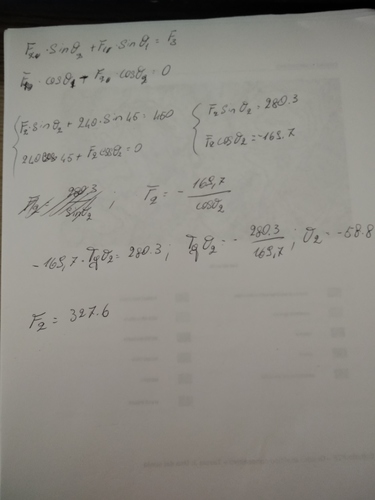 F₂ · Sinθ₂ + F₁ · Sinθ₁ = F₃
F₁ · cosθ₁ + F₂ · cosθ₂ = 0
F₂ · Sinθ₂ + 240 · Sin 45 = 450
240 cos 45 + F₂ cosθ₂ = 0
F₂ Sinθ₂ = 280.3
F₂ cosθ₂ = -169.7
; F₂ = - 169,7 / cosθ₂
-169,7 · Tgθ₂ = 280.3 ; Tgθ₂ = - 280.3 / 169,7 ; θ₂ = -58.8
F₂ = 327.6